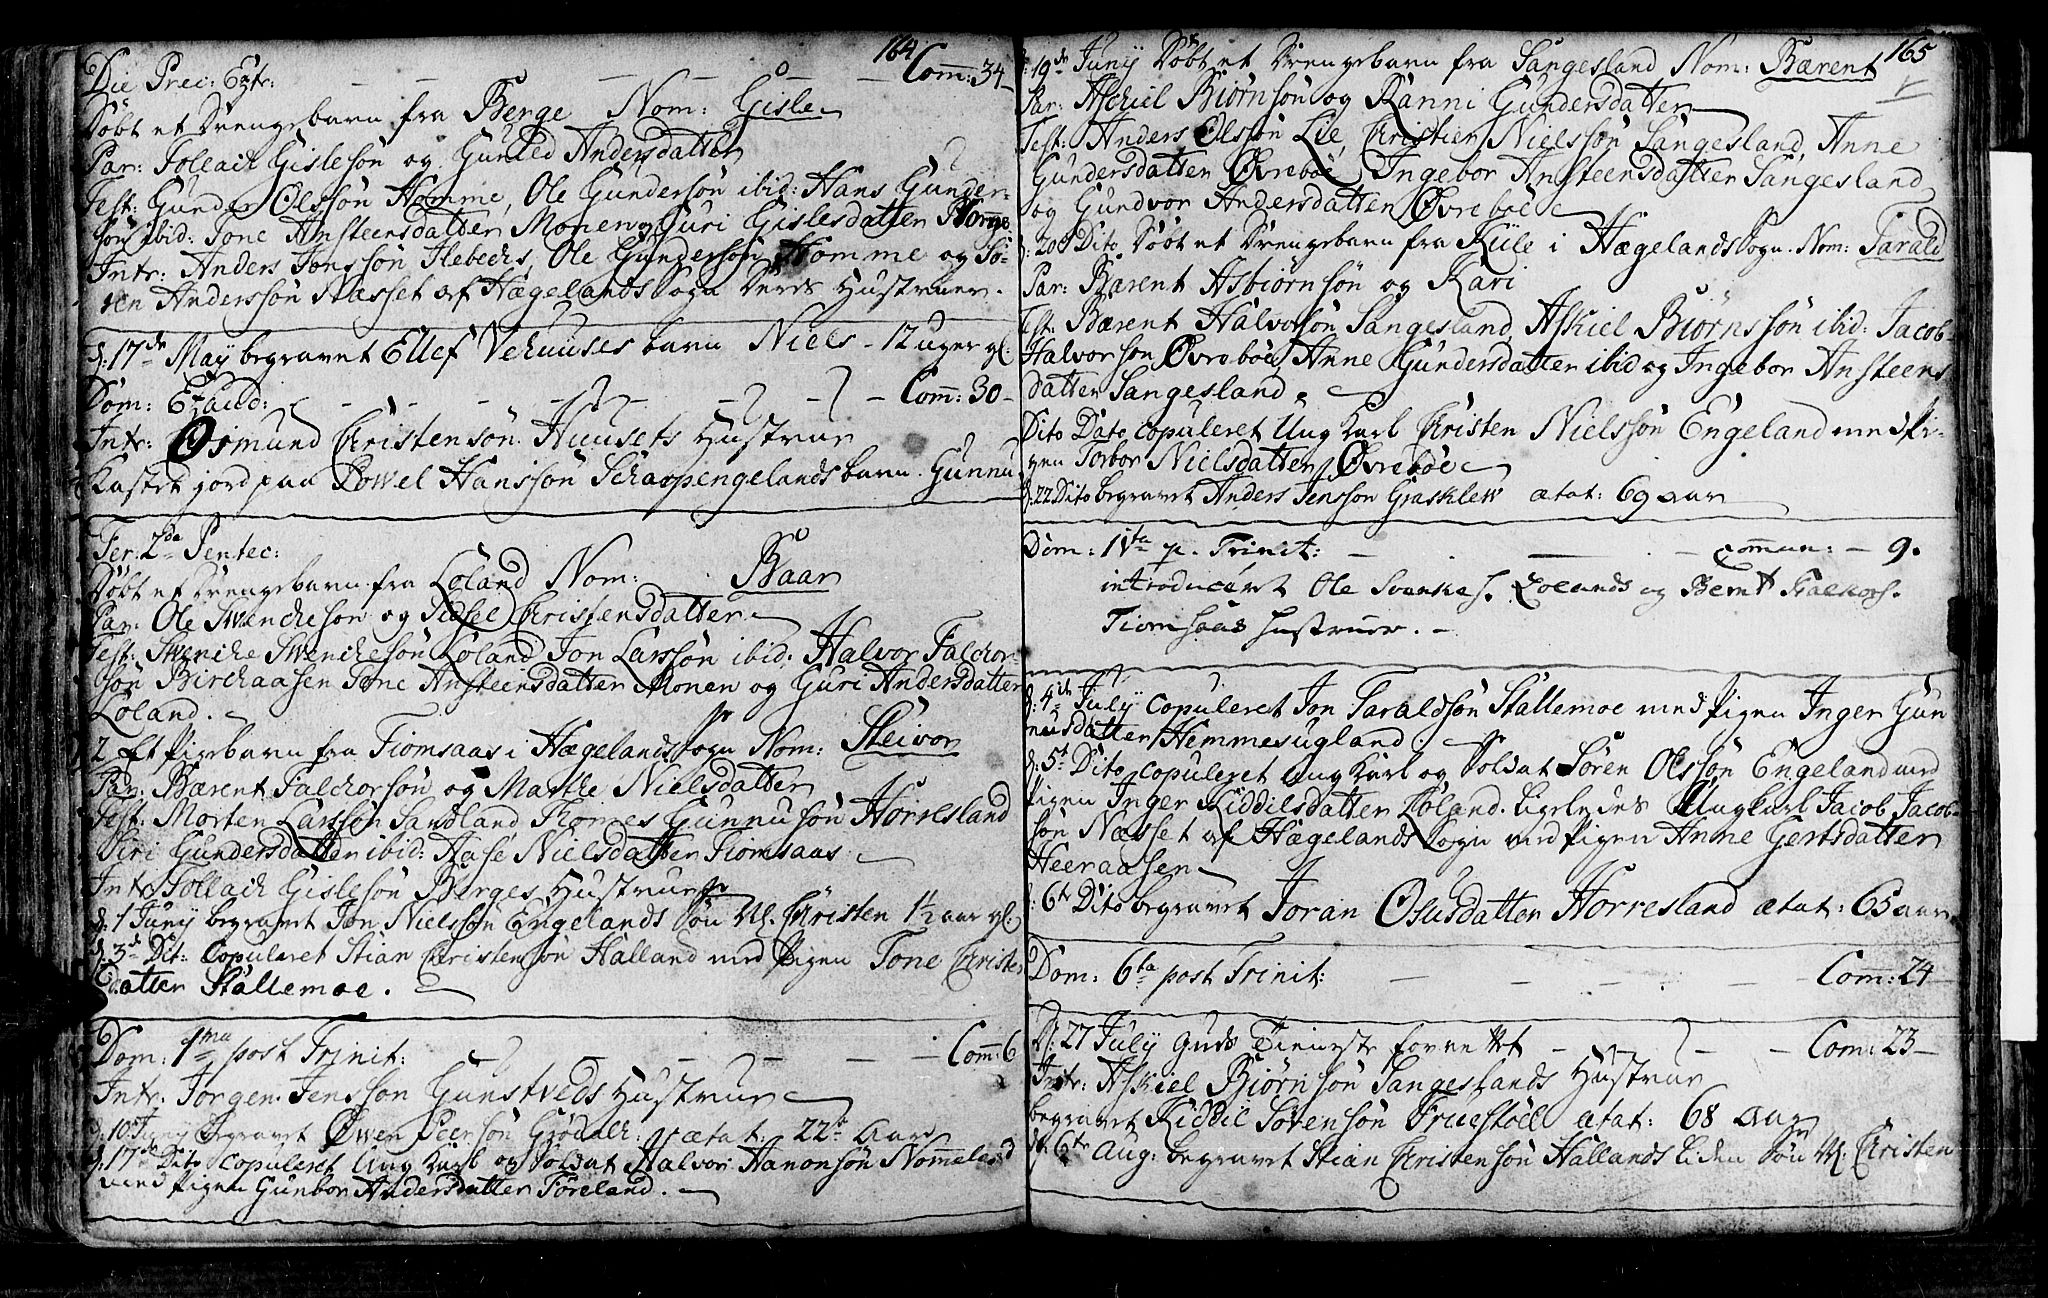 164
Die Prec: Extr: Com̄: 34
Döbt et Drengebarn fra Berge Nom: Gisle
Par: Tollach Gislesön og Gunild Andersdatter
Test: Gunder Olssön Homme, Ole Gundersön ibid: Hans Gunder-
sön ibid: Tone Ansteensdatter Monen og Guri Gislesdatter Homme
Intr: Anders Jonssön Ilebechs, Ole Gundersön Homme og Sö-
ren Anderssön Næsset af Hægelands Sogn Deres Hustruer.
d: 17de Maÿ begravet Ellef Vehuuses barn Niels - 12 uger gl:
Dom: Exaud: Com̄: 30
Intr: Osmund Christensön Huusets Hustrue
Kastet jord paa Powel Hanssön Scharpengelands barn Gunnu
Fer: 2da Pentec:
Döbt et Drengebarn fra Loland Nom: Baar
Par: Ole Swenchesön og Sidsel Christensdatter
Test: Swenche Swenchesön Loland Jon Larssön ibid: Halvor Falchor-
sön Birchaasen Tone Ansteensdatter Monen og Guri Andersdatter
Loland.
2 Et Pigebarn fra Tiomsaas i Hægelands Sogn Nom: Sleivor
Par: Bærent Falchorsön og Marthe Nielsdatter
Test: Morten Larssön Sandland Thomes Gunnusön Horresland
Siri Gundersdatter ibid: Aase Nielsdatter Tiomsaas
Intr: Tollach Gislesön Berges Hustrue
d: 1 Junÿ begravet Jon Nielssön Engelands Sön N. Christen 1½ aar gl:
d: 3de Dit: Copuleret Stian Christensön Halland med Pigen Tone Christens
datter Stallemoe.
Dom: 1ma post Trinit: Com̄: 6
Intr: Jorgen Jenssön Gunstveds Hustrue
d: 10 Junÿ begravet Öwen Peersön ætat: 22 Aar
d: 17de Dito Copuleret Ung Karl og Soldat Halvor Hanonsön Nommeland
med Pigen Gunbor Andersdatter Föreland.
165
d: 19de Junÿ Döbt et Drengebarn fra Sangesland Nom: Bærent
Par: Askiel Biörnsön og Ranni Gundersdatter
Test: Anders Olssön Lie, Christien Nielssön Sangesland, Anne
Gundersdatter Øvreböe, Ingebor Ansteensdatter Sangesland
og Gundvor Andersdatter Øvreböe
d: 20 Dito Döbt et Drengebarn fra Kule i Hægelands Sogn. Nom: Tarald
Par: Bærent Asbiörnsön og Kari
Test: Bærent Halvorsön Sangesland, Askiel Biörnssön ibid: Jacob
Halvorsön Øvreböe, Anne Gundersdatter ibid og Ingebor Ansteens
datter Sangesland.
Dito Dato copuleret Ung Karl Christen Nielssön Engeland med Pi-
gen Torbor Nielsdatter Øvreböe
d: 22 Dito begravet Anders Jenssön Grasklew ætat: 69 aar
Dom: IVta p. Trinit: Com̄un: - 9.
introduceret Ole Svenkes. Lolands og Bernt Falkors.
Tiomsaas Hustruer. -
d: 4de July Copuleret Jon Taraldsön Stallemoe med Pigen Inger Gun
nusdatter Hemmesugland.
d: 5t Dito copuleret Ung Karl og Soldat Sören Olssön Engeland med
Pigen Inger Kiddilsdatter Loland. ligeledes Ung karl Jacob Jacob-
sön Næsset af Hægelands Sogn med Pigen Anne Gertsdatter
Heeraasen
d: 6t Dito begravet Joran Osusdatter Horresland ætat: 65 aar
Dom: 6ta post Trinit: Com: 24
D: 27 July Guds Tieneste forrettet Com: 23
Intr: Askiel Biörnsön Sangeslands Hustrue
begravet Kiddil Sörensön Fruestöel ætat: 68 Aar
d: 6te Aug: begravet Stian Christensön Hallands liden Sön N. Christen